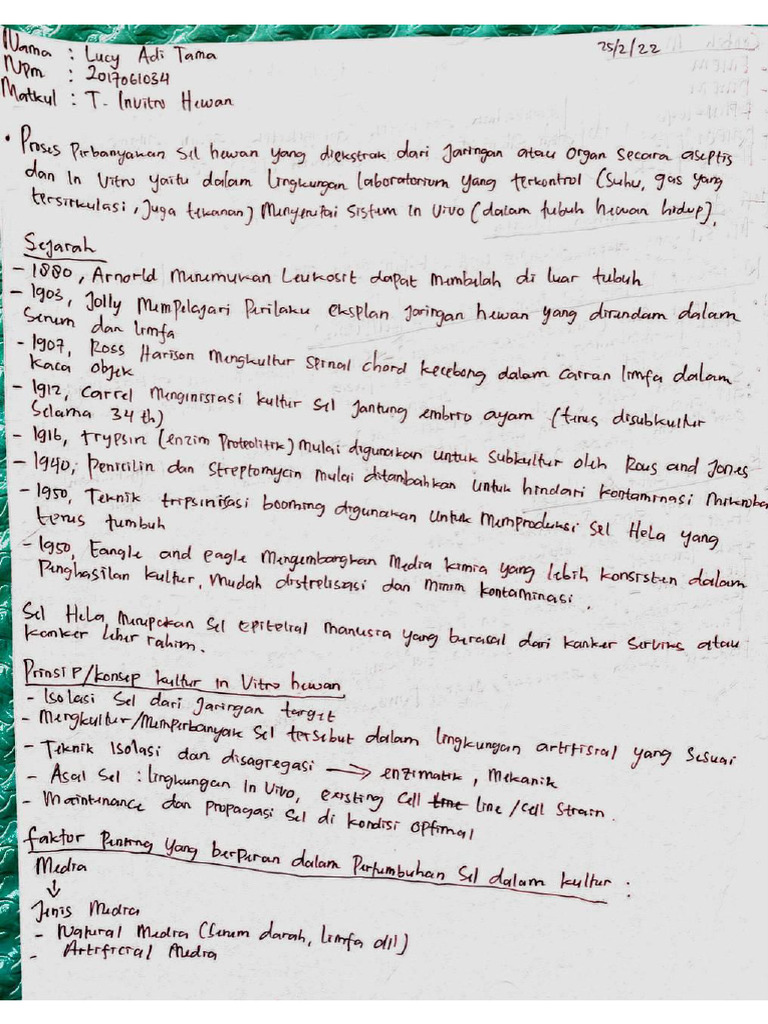 Nama : Lucy Adi Tama
25/2/22
Npm : 2017061034
Matkul : T. Invitro Hewan
• Proses Perbanyakan Sel hewan yang diekstrak dari Jaringan atau organ secara aseptis
dan In Vitro yaitu dalam lingkungan laboratorium yang terkontrol (Suhu, gas yang
tersirkulasi, Juga tekanan) Menyerupai Sistem in Vivo (dalam tubuh hewan hidup).
Sejarah
- 1880, Arnorld Menemukan Leukosit dapat Membelah di luar tubuh
- 1903, Jolly Mempelajari Perilaku eksplan Jaringan hewan yang direndam dalam
Serum dan limfa
- 1907, Ross Harison Mengkultur Spinal chord kecebong dalam cairan limfa dalam
kaca objek
- 1912, Carrel Menginisiasi kultur sel Jantung embrio ayam (terus disubkultur
Selama 34 th)
- 1916, trypsin (enzim Proteolitik) mulai digunakan untuk subkultur oleh Rous and Jones
- 1940, Penicilin dan Streptomycin mulai ditambahkan untuk hindari kontaminasi Mikroba
- 1950, Teknik tripsinisasi booming digunakan untuk Memproduksi Sel Hela yang
terus tumbuh
- 1950, Eangle and eagle Mengembangkan Media kimia yang lebih konsisten dalam
Penghasilan kultur, Mudah distrelisasi dan Minim kontaminasi.
Sel Hela, Merupakan Sel epitelial manusia yang berasal dari kanker Serviks atau
kanker leher rahim.
Prinsip/konsep kultur in Vitro hewan
- Isolasi Sel dari Jaringan target
- Mengkultur/Memperbanyak Sel tersebut dalam lingkungan artifisial yang sesuai
- Teknik Isolasi dan disagregasi → enzimatik, Mekanik
- Asal Sel : lingkungan In Vivo, existing Cell line /Cell Strain.
- Maintenance dan propagasi Sel di kondisi optimal
faktor Penting yang berperan dalam Pertumbuhan Sel dalam kultur :
Media
↓
Jenis Media
- Natural Media (Serum darah, limfa dll)
- Artificial Media